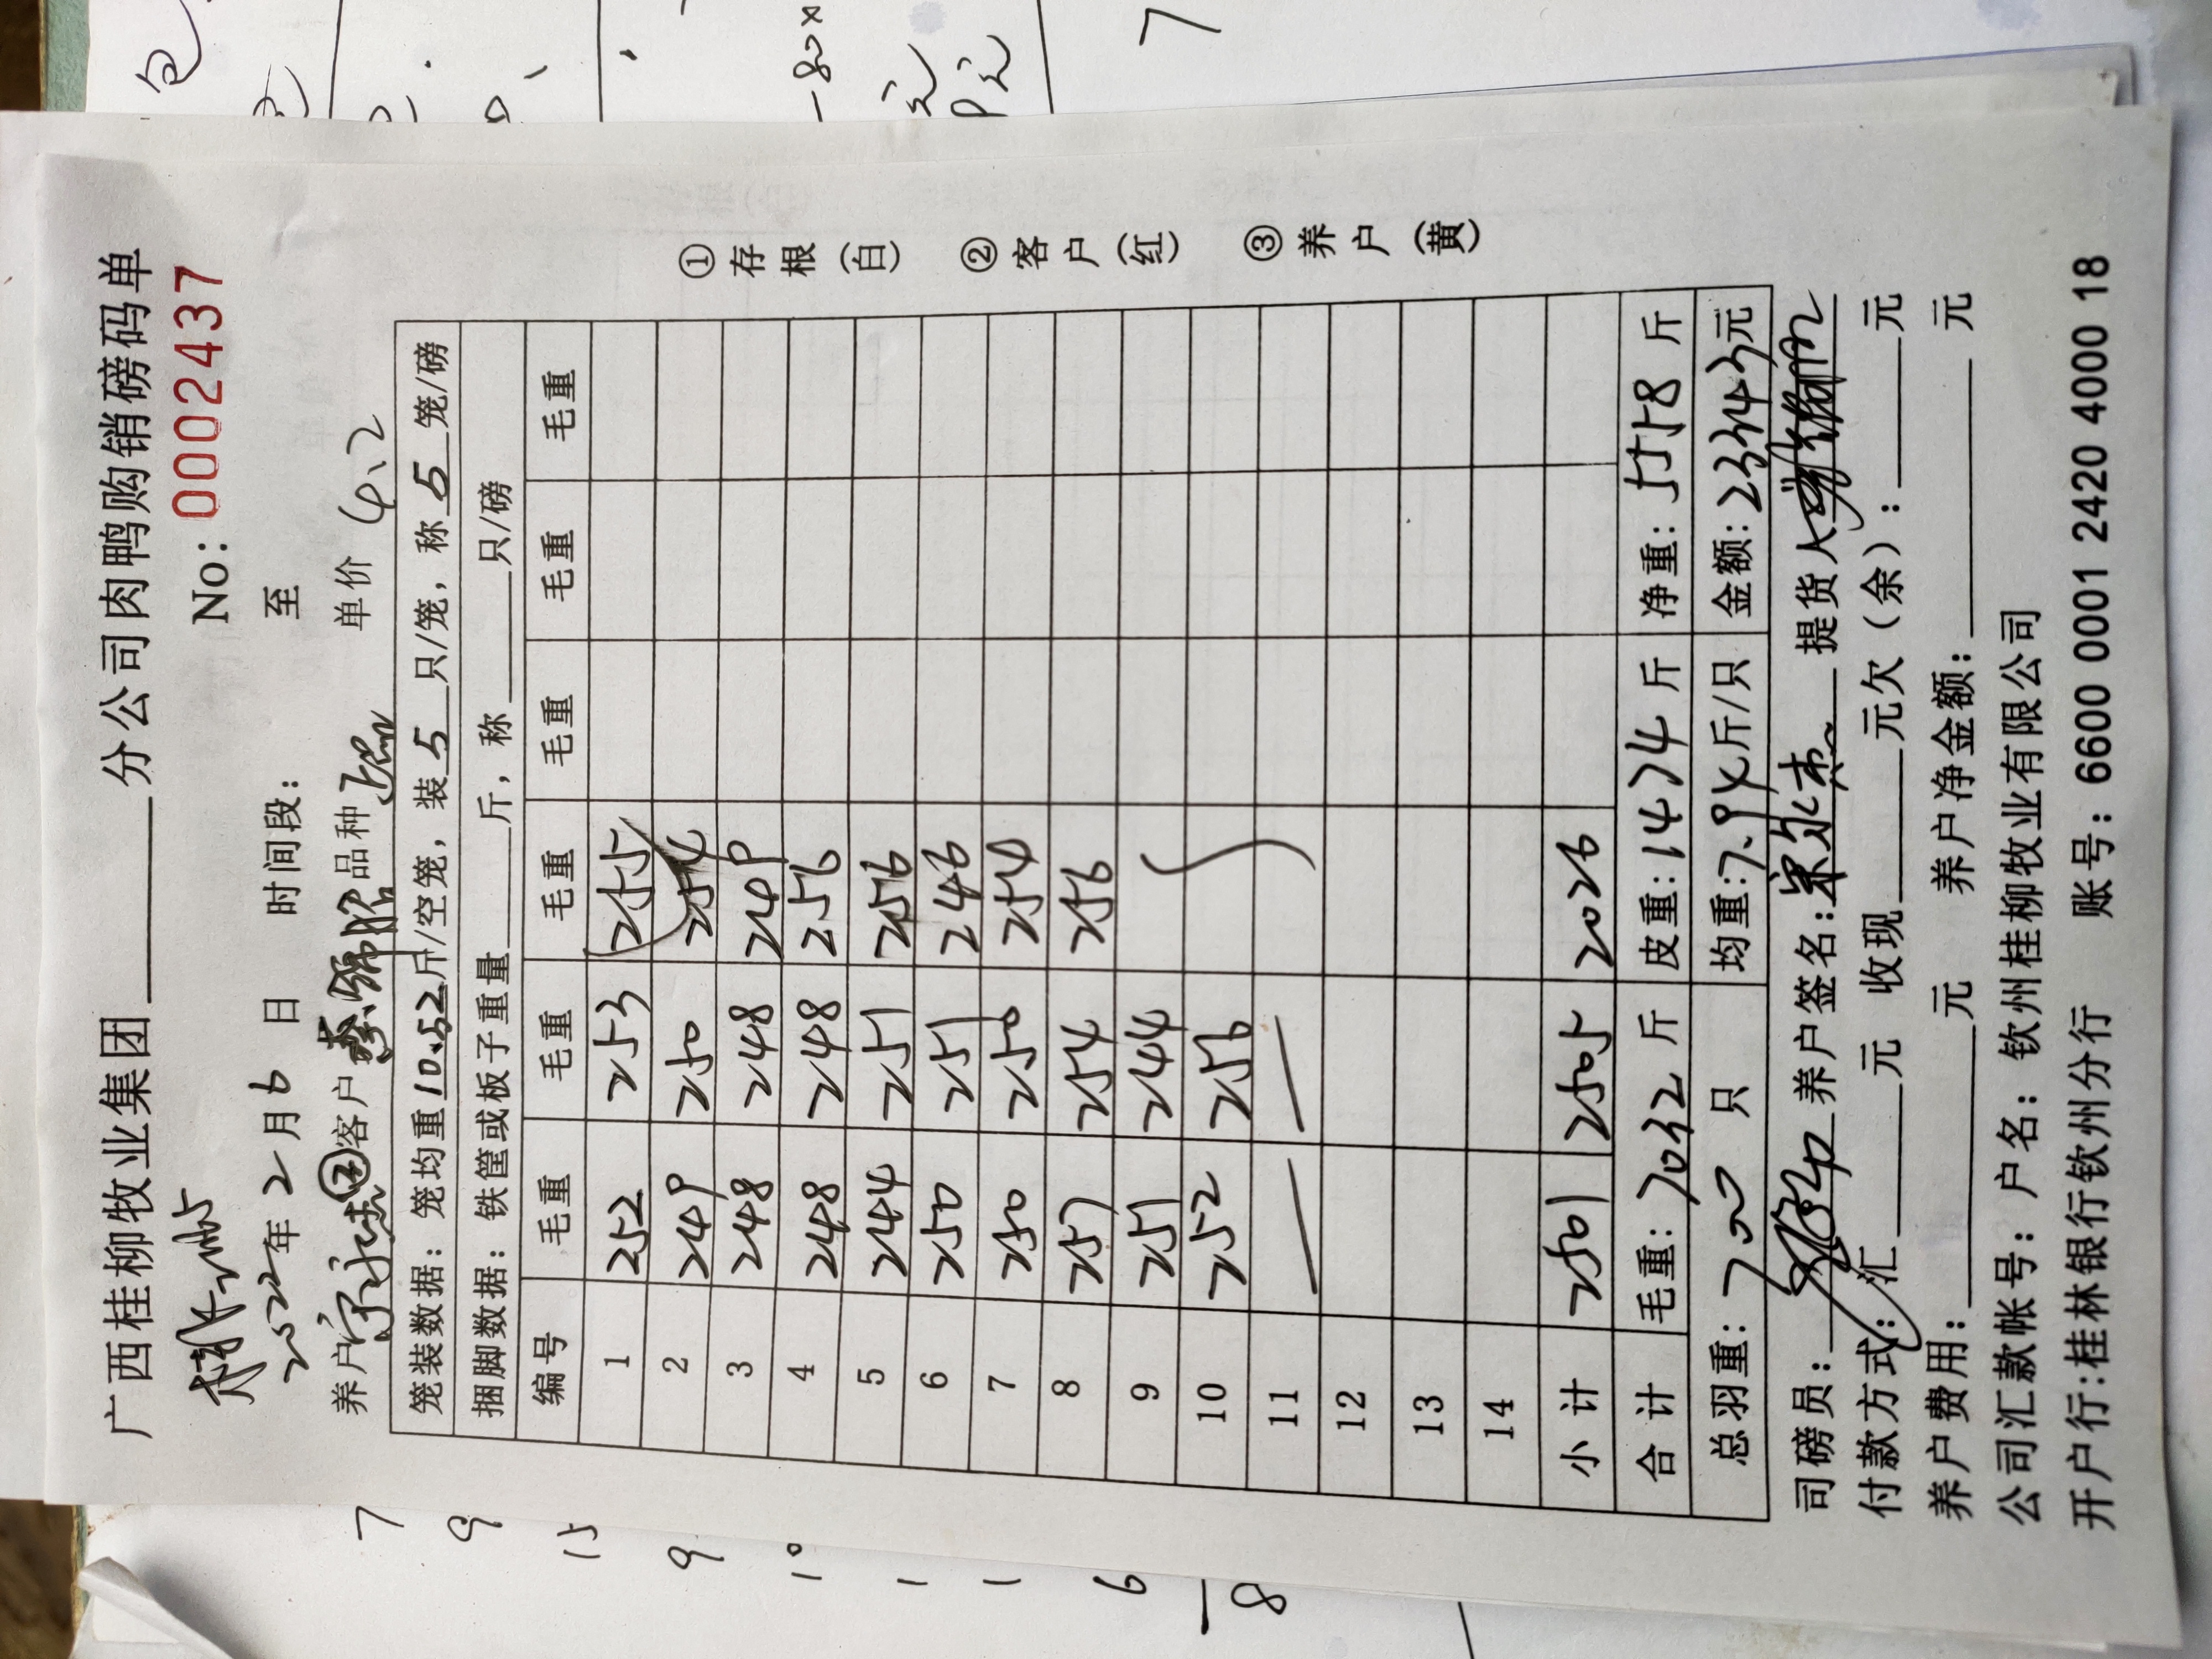 广西桂柳牧业集团______分公司肉鸭购销磅码单
No: 0002437
2022年2月6日 时间段: 至
养户 客户 品种 单价 4、2
笼装数据: 笼均重10.52斤/空笼, 装 5 只/笼, 称 5 笼/磅
捆脚数据: 铁筐或板子重量______斤, 称______只/磅
编号 毛重 毛重 毛重 毛重 毛重 毛重
1 252 253 255
2 249 250 254
3 248 248 249
4 248 248 256
5 244 251 256
6 250 251 246
7 250 250 254
8 257 254 256
9 251 244
10 252 256
11 — —
12
13
14
小计 2501 2505 2026
合计 毛重: 7032 斤 皮重: 1474 斤 净重: 5558 斤
总羽重: 700 只 均重: 7.94斤/只 金额: 23343元
司磅员: 养户签名: 提货人
付款方式: 汇______元 收现______元欠(余): ______元
养户费用: ______元 养户净金额: ______元
公司汇款帐号: 户名: 钦州桂柳牧业有限公司
开户行:桂林银行钦州分行 账号: 6600 0001 2420 4000 18
①存根(白) ②客户(红) ③养户(黄)
包
-80x
元
元
7
7
9
15
9
10
1
1
6
8